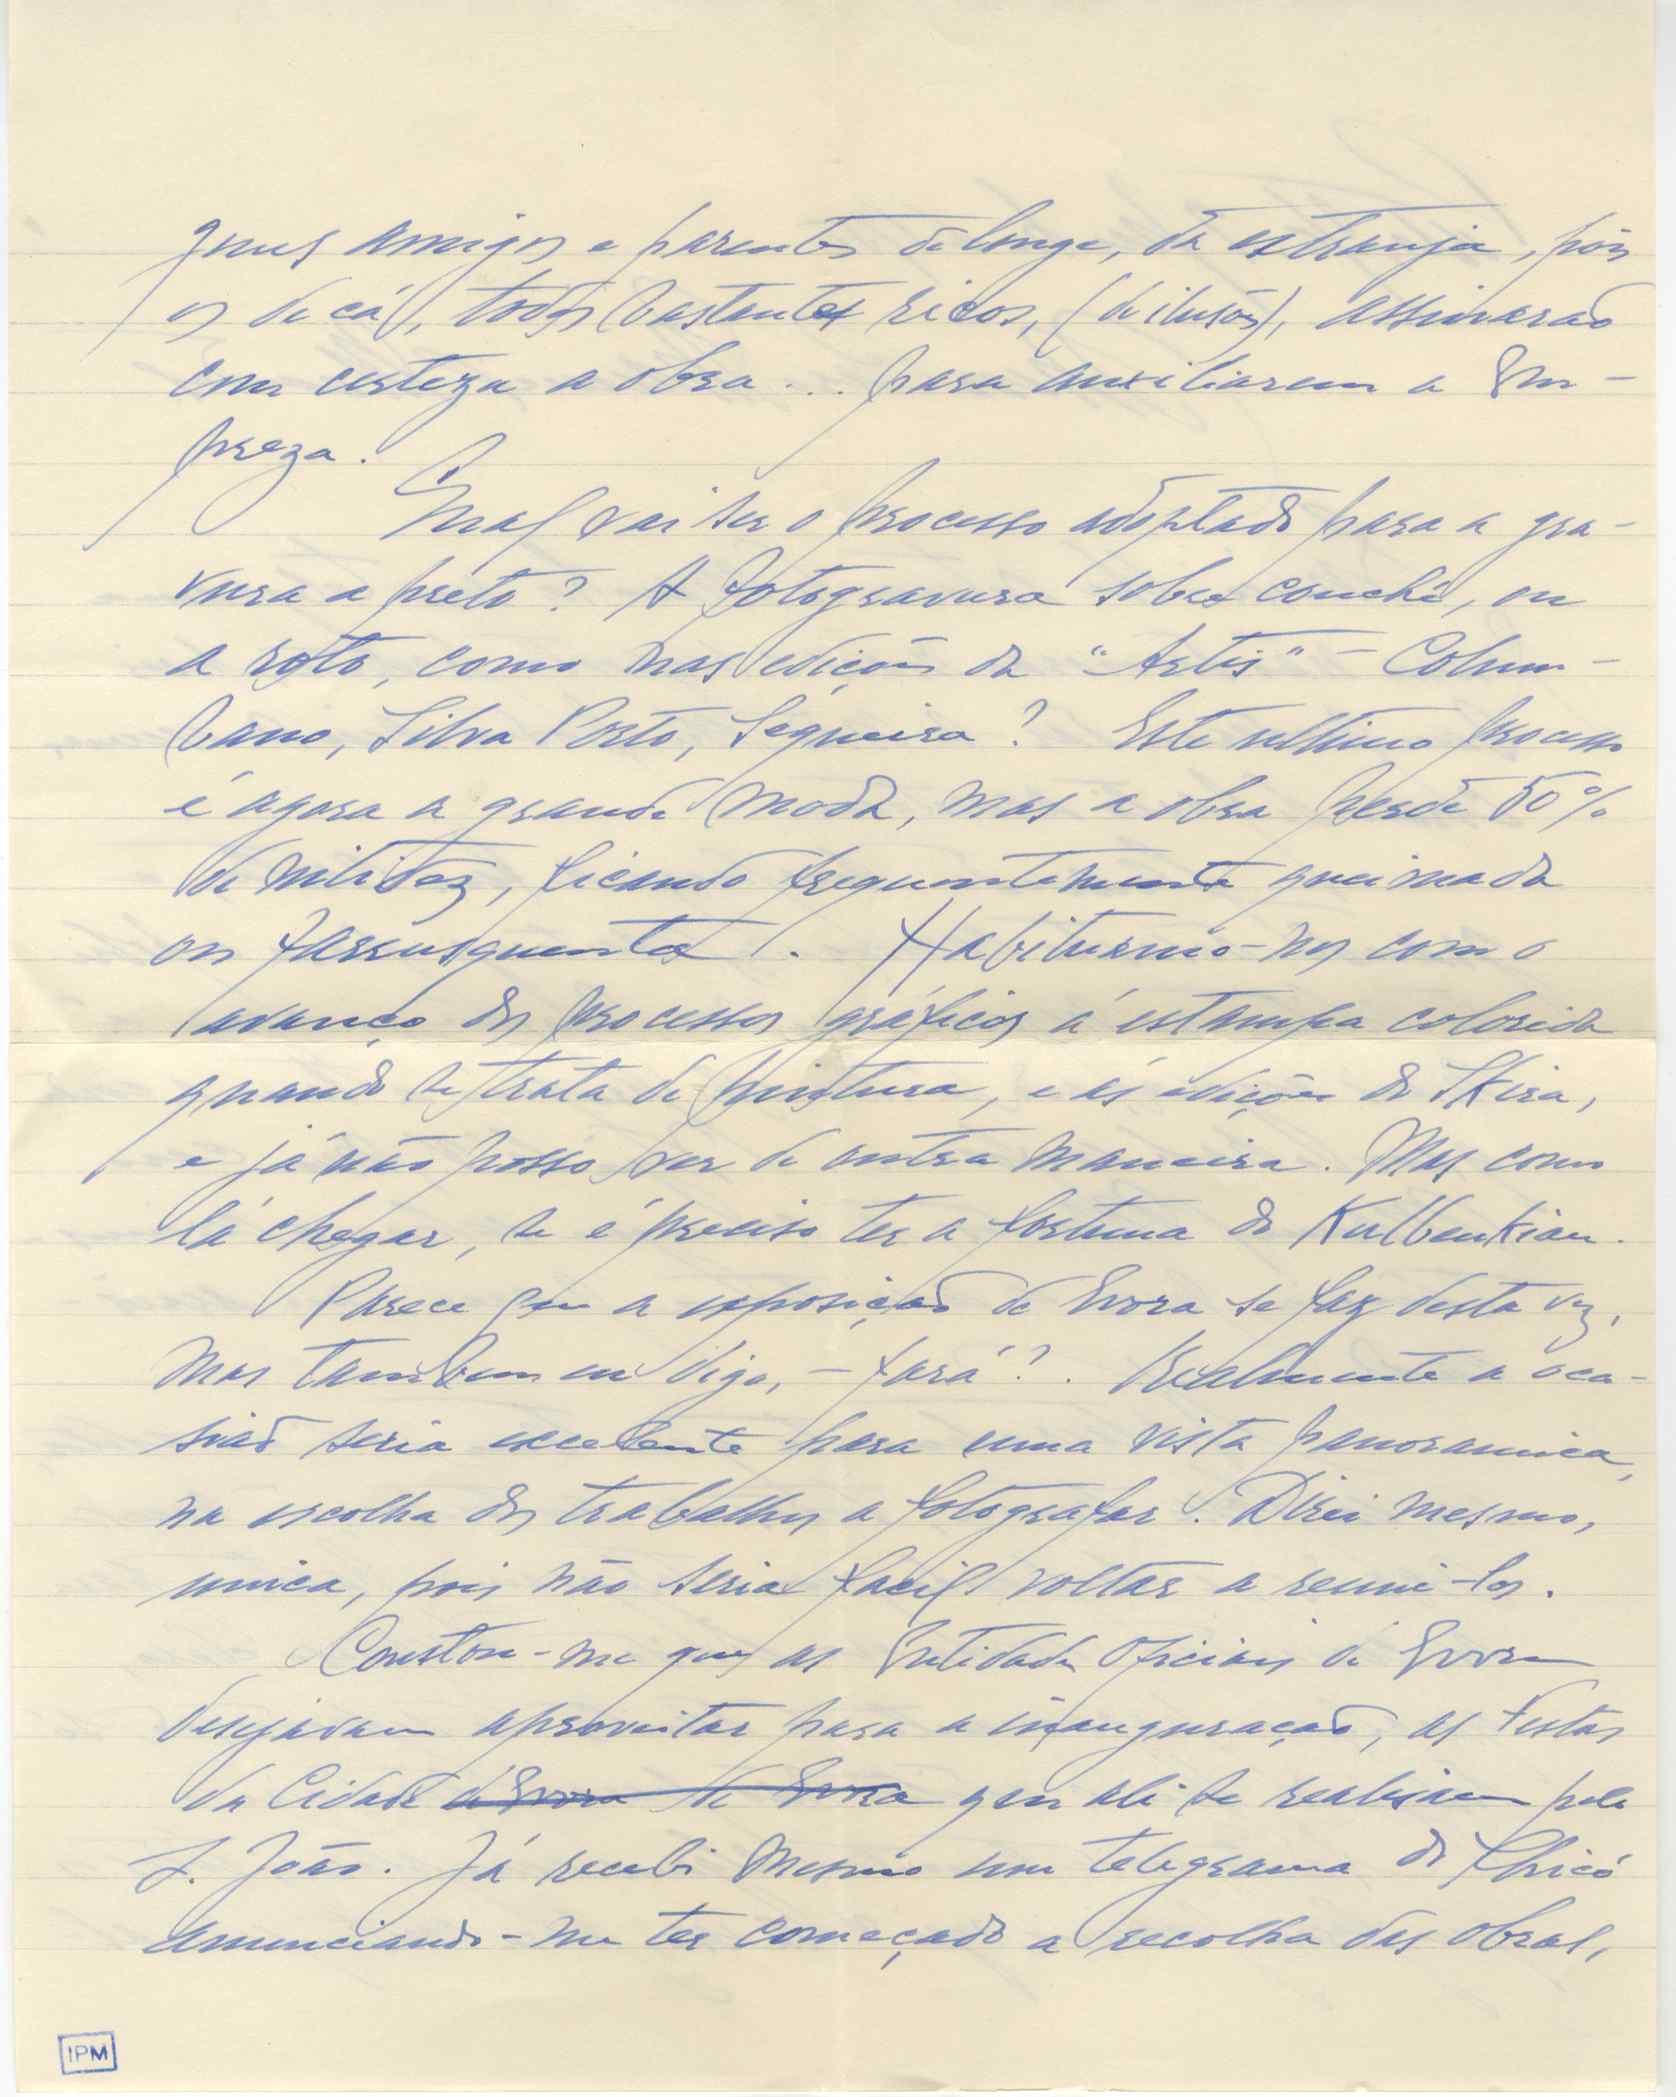 guns amigos e parentes de longe, da estranja, pois
os de cá, todos bastantes ricos, (de ilusões), assinarão
com certeza a obra... para auxiliarem a Em-
preza.
Qual vai ser o processo adoptado para a gra-
vura a preto? A fotogravura sobre couché, ou
a roto, como nas edições da "Artis" - Colum-
bano, Silva Porto, Sequeira? Este ultimo processo
é agora a grande moda, mas a obra perde 50%
de nitidez, ficando frequentemente queimada
ou farrusquenta. Habituamo-nos com o
avanço dos processos gráficos á estampa colorida
quando se trata de pintura, e ás edições do Skira,
e já não posso ver de outra maneira. Mas como
lá chegar, se é preciso ter a fortuna do Kulbenkian.
Parece que a exposição de Evora se faz desta vez,
mas tambem eu digo, - fará?. Realmente a oca-
sião seria excelente para uma vista panoramica,
na escolha dos trabalhos a fotografar. Direi mesmo,
unica, pois não seria facil voltar a reuni-los.
Constou-me que as Entidades Oficiais de Evora
desejavam aproveitar para a inauguração, as Festas
da Cidade de Evora de Evora que ali se realisam pelo
S. João. Já recebi mesmo um telegrama do Chicó
anunciando-me ter começado a recolha das obras,
IPM